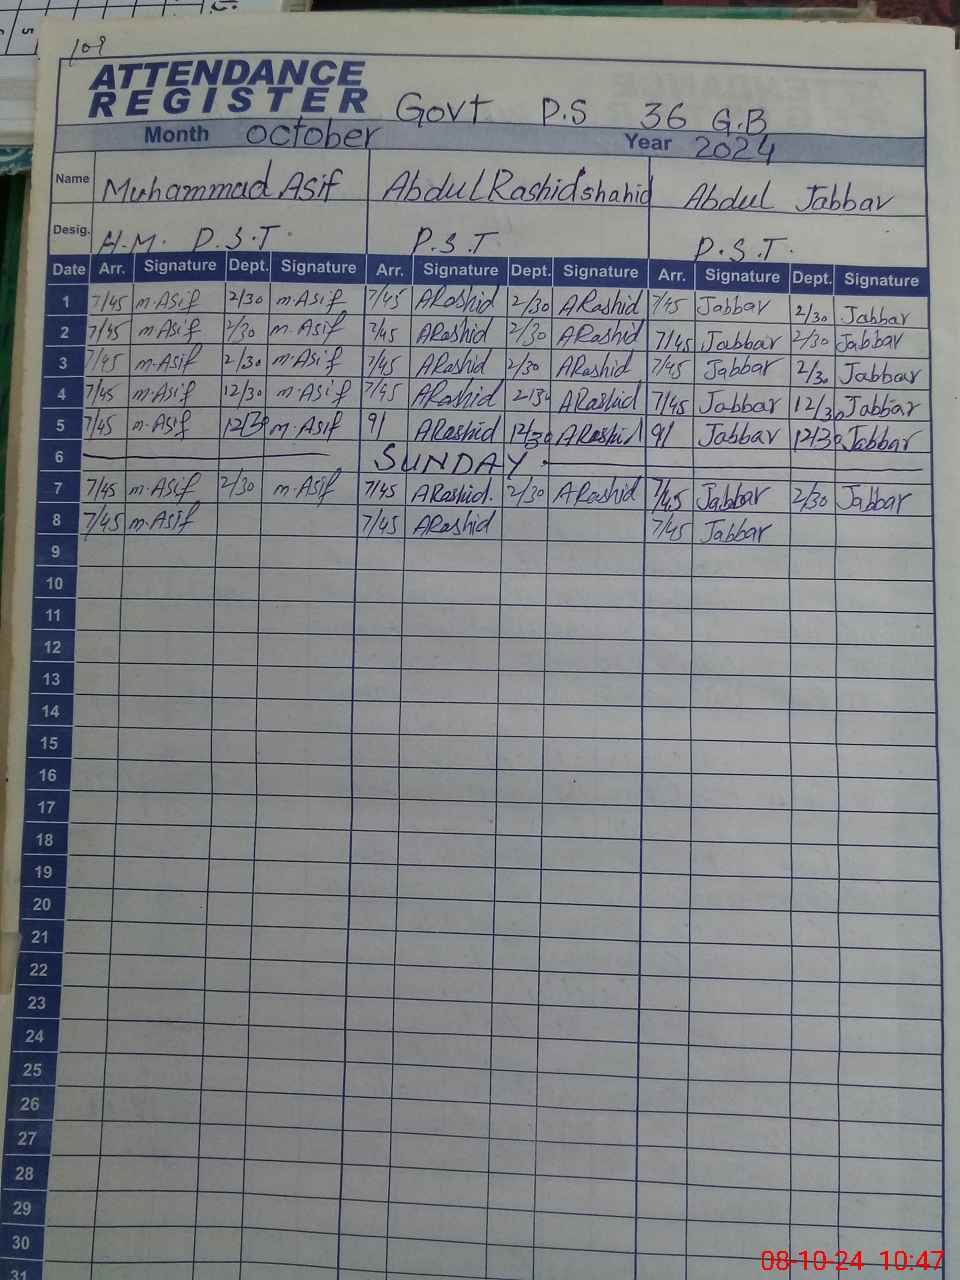 109
ATTENDANCE
REGISTER Govt P.S 36 G.B
Month October Year 2024
Name Muhammad Asif Abdul Rashid shahid Abdul Jabbar
Desig. H.M. P.S.T. P.S.T P.S.T.
Date Arr. Signature Dept. Signature Arr. Signature Dept. Signature Arr. Signature Dept. Signature
1 7/45 m.Asif 2/30 m.Asif 7/45 ARashid 2/30 ARashid 7/45 Jabbar 2/30 Jabbar
2 7/45 m.Asif 2/30 m.Asif 7/45 ARashid 2/30 ARashid 7/45 Jabbar 2/30 Jabbar
3 7/45 m.Asif 2/30 m.Asif 7/45 ARashid 2/30 ARashid 7/45 Jabbar 2/30 Jabbar
4 7/45 m.Asif 12/30 m.Asif 7/45 ARashid ARashid 7/45 Jabbar 12/30 Jabbar
5 7/45 m.Asif m.Asif 9/ ARashid 12/30 ARashid 9/ Jabbar 12/30 Jabbar
6 SUNDAY
7 7/45 m.Asif 2/30 m.Asif 7/45 ARashid. 2/30 ARashid 7/45 Jabbar 2/30 Jabbar
8 7/45 m.Asif 7/45 ARashid 7/45 Jabbar
9
10
11
12
13
14
15
16
17
18
19
20
21
22
23
24
25
26
27
28
29
30
31
08-10-24 10:47